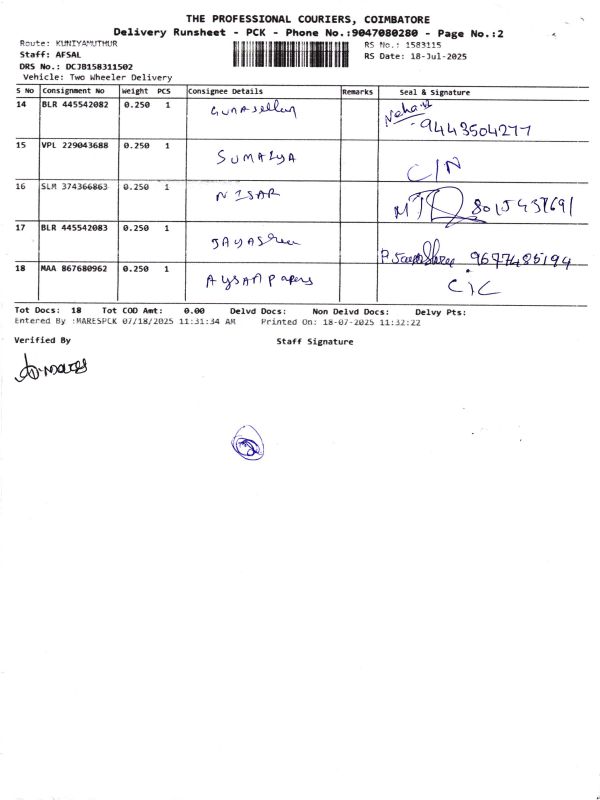 THE PROFESSIONAL COURIERS, COIMBATORE
Delivery Runsheet - PCK - Phone No.:9047080280 - Page No.:2
Route: KUNIYAMUTHUR RS No.: 1583115
Staff: AFSAL RS Date: 18-Jul-2025
DRS No.: DCJB158311502
Vehicle: Two Wheeler Delivery
S No Consignment No Weight PCS Consignee Details Remarks Seal & Signature
14 BLR 445542082 0.250 1 Gunaseelan Neha
9443504277
15 VPL 229043688 0.250 1 SUMAIYA C/N
16 SLM 374366863 0.250 1 NISAR 8015437691
17 BLR 445542083 0.250 1 JAYAShree 9677485194
18 MAA 867680962 0.250 1 AYSAN Papers C/C
Tot Docs: 18 Tot COD Amt: 0.00 Delvd Docs: Non Delvd Docs: Delvy Pts:
Entered By :MARESPCK 07/18/2025 11:31:34 AM Printed On: 18-07-2025 11:32:22
Verified By Staff Signature